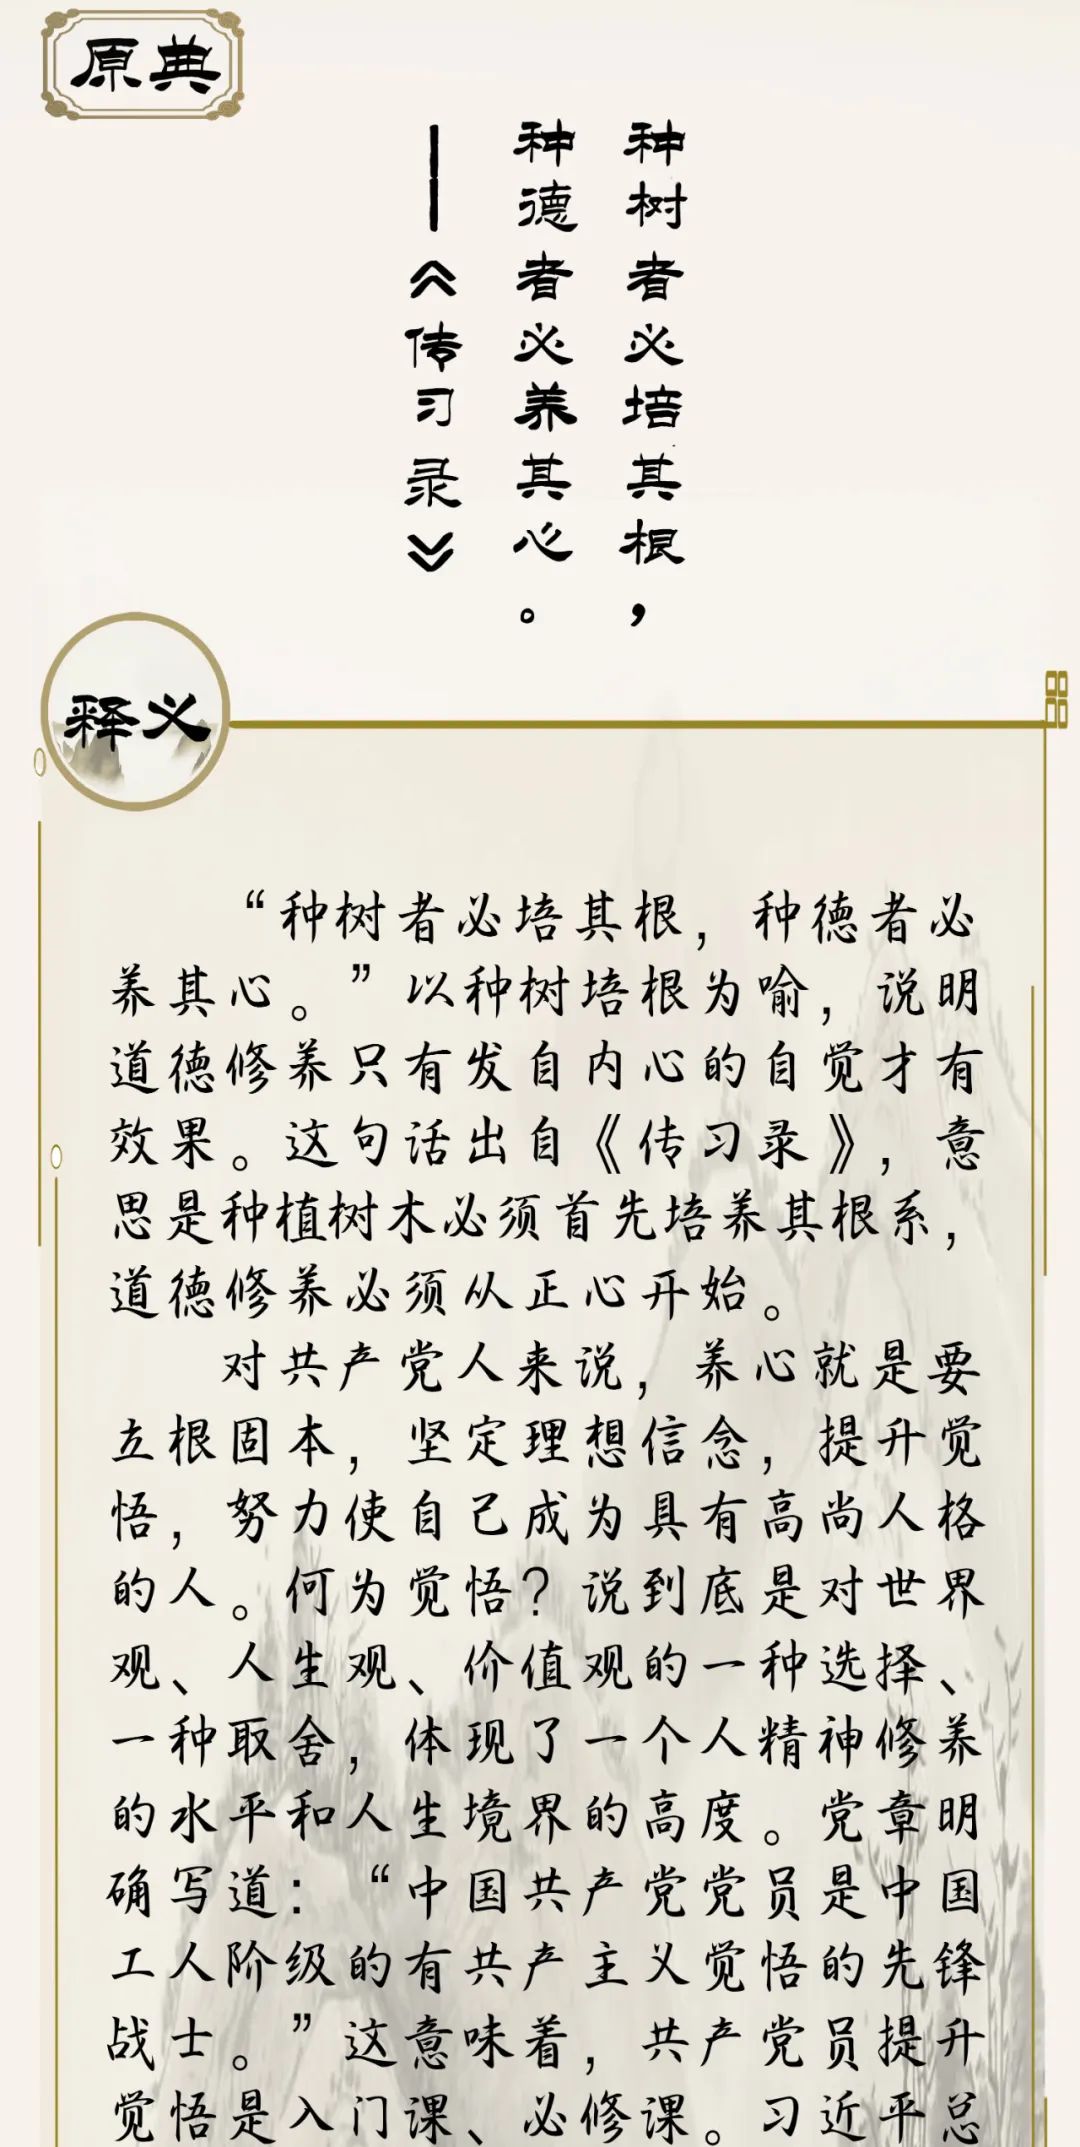 原典
种树者必培其根，
种德者必养其心。
——《传习录》
释义
“种树者必培其根，种德者必
养其心。”以种树培根为喻，说明
道德修养只有发自内心的自觉才有
效果。这句话出自《传习录》，意
思是种植树木必须首先培养其根系，
道德修养必须从正心开始。
对共产党人来说，养心就是要
立根固本，坚定理想信念，提升觉
悟，努力使自己成为具有高尚人格
的人。何为觉悟？说到底是对世界
观、人生观、价值观的一种选择、
一种取舍，体现了一个人精神修养
的水平和人生境界的高度。党章明
确写道：“中国共产党党员是中国
工人阶级的有共产主义觉悟的先锋
战士。”这意味着，共产党员提升
觉悟是入门课、必修课。习近平总